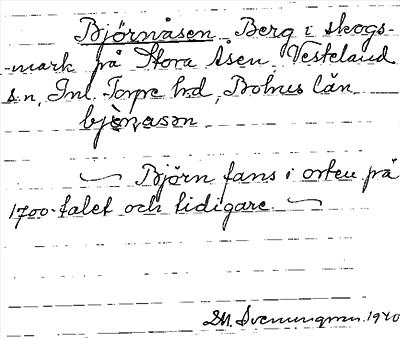 Björnåsen Berg i skogs-
-mark på Stora Åsen Vesteland
s.n, Inl. Torpe hd, Bohus län
bjö̀nasən
Björn fans i orten på
1700-talet och tidigare
D.H. Svenungsson. 1940